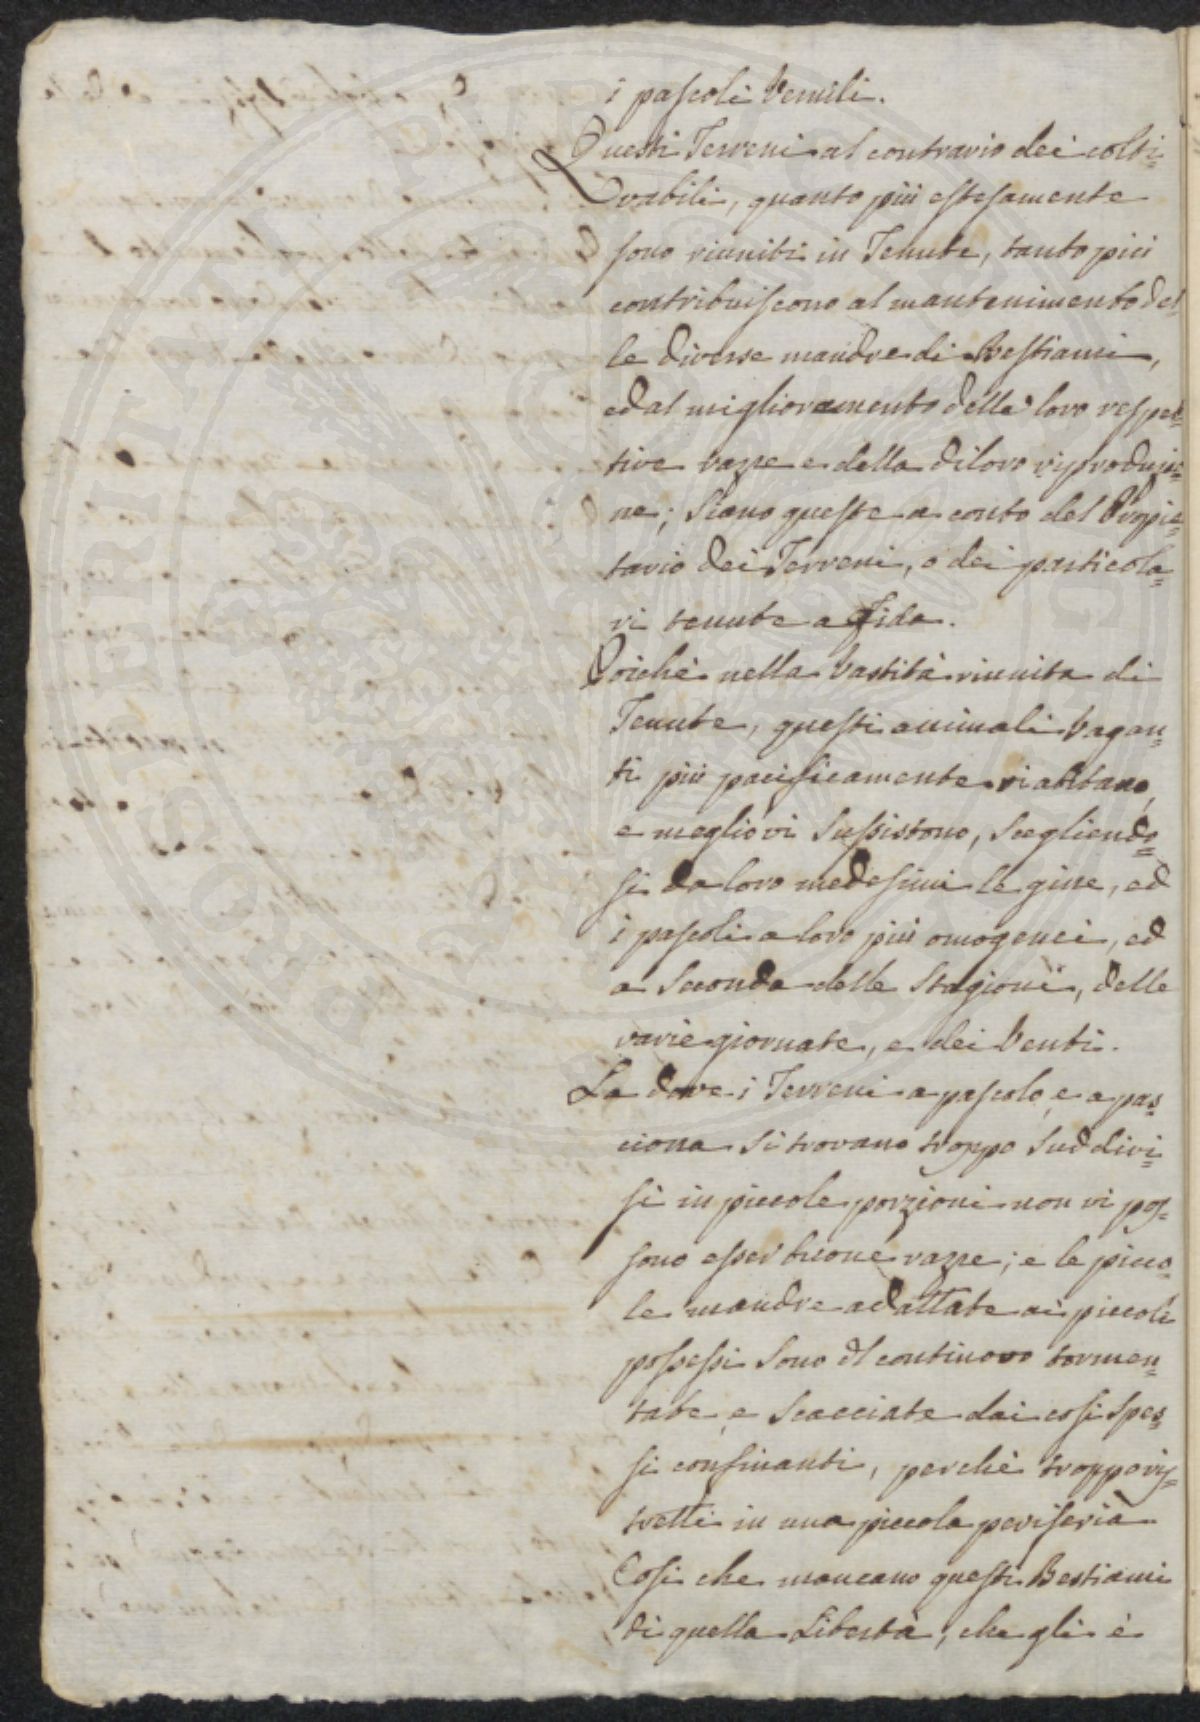 i pascoli Vernili.
Questi Terreni al contrario dei colti=
vabili, quanto più estesamente
sono riuniti in Tenute, tanto più
contribuiscono al mantenimento del=
le diverse mandre di Bestiami,
ed al miglioramento delle loro respet=
tive razze e della di loro riproduzio=
ne; Siano queste a conto del Propie=
tario dei Terreni, o dei particola=
ri tenute a Fida.
Poichè nella Vastità riunita di
Tenute, questi animali Vagan=
ti più pacificamente vi abitano,
e meglio vi Sussistono, Scegliendo=
si da loro medesimi le gire, ed
i pascoli a loro più omogenei, ed
a Seconda delle Stagioni, delle
varie giornate, e dei Venti.
La dove i Terreni a pascolo, e a pas=
ciona Si trovano troppo Suddivi=
si in piccole porzioni non vi pos=
sono esser buone razze; e le picco=
le mandre adattate ai piccoli
possessi Sono di continovo tormen=
tate, e Scacciate dai così Spes=
si confinanti, perchè troppo ris=
tretti in una piccola periferia
Così che mancano questi Bestiami
di quella Libertà, che gli è